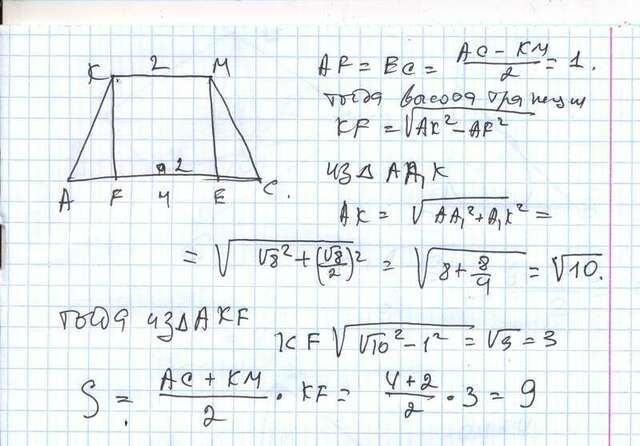 K 2 M
2
A F 4 E C.
AF = EC = (AC - KM)/2 = 1.
тогда высота трапеции
KF = √(AK² - AF²)
из Δ AA₁K
AK = √(AA₁² + A₁K²) =
= √(√8² + (√8/2)²) = √(8 + 8/4) = √10.
тогда из Δ AKF
KF √(√10² - 1²) = √3 = 3
S = (AC + KM)/2 · KF = (4 + 2)/2 · 3 = 9